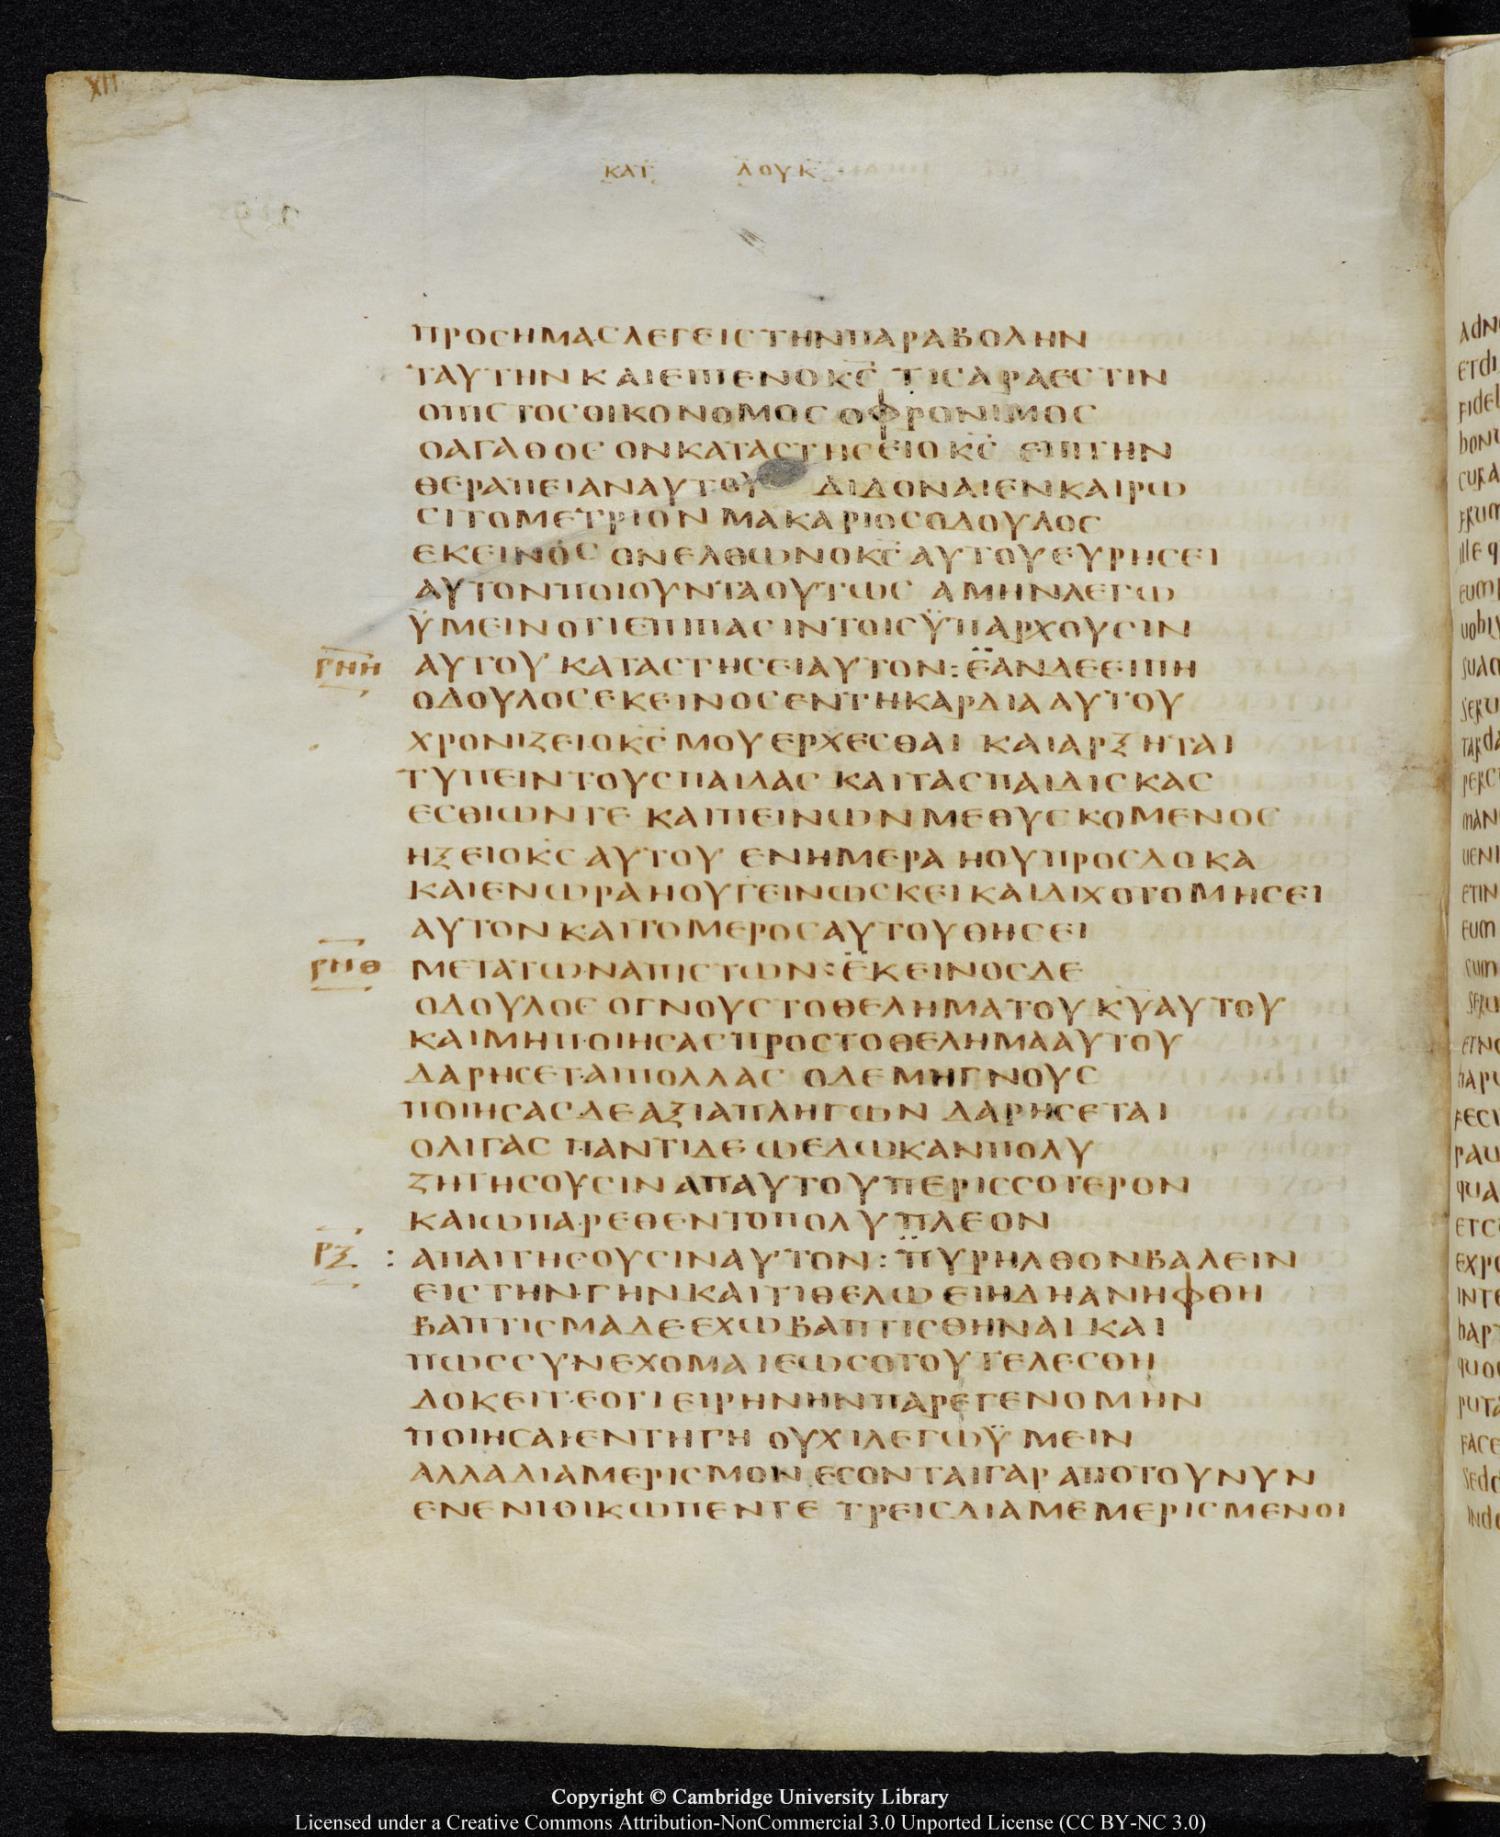 XII
ΚΑΤ ΛΟΥΚ
ΠΡΟΣΗΜΑΣ ΛΕΓΕΙΣ ΤΗΝΠΑΡΑΒΟΛΗΝ
ΤΑΥΤΗΝ ΚΑΙΕΙΠΕΝΟΚΣ ΤΙΣΑΡΑΕΣΤΙΝ
ΟΠΙΣΤΟΣΟΙΚΟΝΟΜΟΣ ΟΦΡΟΝΙΜΟΣ
ΟΑΓΑΘΟΣ ΟΝΚΑΤΑΣΤΗΣΕΙΟΚΣ ΕΠΙΤΗΝ
ΘΕΡΑΠΕΙΑΝΑΥΤΟΥ ΔΙΔΟΝΑΙΕΝΚΑΙΡΩ
ΣΙΤΟΜΕΤΡΙΟΝ ΜΑΚΑΡΙΟΣΟΔΟΥΛΟΣ
ΕΚΕΙΝΟΣ ΟΝΕΛΘΩΝΟΚΣ ΑΥΤΟΥΕΥΡΗΣΕΙ
ΑΥΤΟΝΠΟΙΟΥΝΤΑΟΥΤΩΣ ΑΜΗΝΛΕΓΩ
ΫΜΕΙΝΟΤΙΕΠΙΠΑΣΙΝΤΟΙΣΫΠΑΡΧΟΥΣΙΝ
ΡΝΗ ΑΥΤΟΥ ΚΑΤΑΣΤΗΣΕΙΑΥΤΟΝ:ΕΑΝΔΕΕΙΠΗ
ΟΔΟΥΛΟΣΕΚΕΙΝΟΣΕΝΤΗΚΑΡΔΙΑΑΥΤΟΥ
ΧΡΟΝΙΖΕΙΟΚΣ ΜΟΥΕΡΧΕΣΘΑΙ ΚΑΙΑΡΞΗΤΑΙ
ΤΥΠΕΙΝΤΟΥΣΠΑΙΔΑΣ ΚΑΙΤΑΣΠΑΙΔΙΣΚΑΣ
ΕΣΘΙΩΝΤΕ ΚΑΙΠΕΙΝΩΝΜΕΘΥΣΚΟΜΕΝΟΣ
ΗΞΕΙΟΚΣ ΑΥΤΟΥ ΕΝΗΜΕΡΑ ΗΟΥΠΡΟΣΔΟΚΑ
ΚΑΙΕΝΩΡΑΗΟΥΓΕΙΝΩΣΚΕΙΚΑΙΔΙΧΟΤΟΜΗΣΕΙ
ΑΥΤΟΝΚΑΙΤΟΜΕΡΟΣΑΥΤΟΥΘΗΣΕΙ
ΡΝΘ ΜΕΤΑΤΩΝΑΠΙΣΤΩΝ:ΕΚΕΙΝΟΣΔΕ
ΟΔΟΥΛΟΣ ΟΓΝΟΥΣΤΟΘΕΛΗΜΑΤΟΥ ΚΥΑΥΤΟΥ
ΚΑΙΜΗΠΟΙΗΣΑΣΠΡΟΣΤΟΘΕΛΗΜΑΑΥΤΟΥ
ΔΑΡΗΣΕΤΑΙΠΟΛΛΑΣ ΟΔΕΜΗΓΝΟΥΣ
ΠΟΙΗΣΑΣΔΕΑΞΙΑΠΛΗΓΩΝ ΔΑΡΗΣΕΤΑΙ
ΟΛΙΓΑΣ ΠΑΝΤΙΔΕ ΩΕΔΩΚΑΝΠΟΛΥ
ΖΗΤΗΣΟΥΣΙΝ ΑΠΑΥΤΟΥΠΕΡΙΣΣΟΤΕΡΟΝ
ΚΑΙΩΠΑΡΕΘΕΝΤΟΠΟΛΥ ΠΛΕΟΝ
ΡΞ : ΑΠΑΙΤΗΣΟΥΣΙΝΑΥΤΟΝ:ΠΥΡΗΛΘΟΝΒΑΛΕΙΝ
ΕΙΣΤΗΝΓΗΝΚΑΙΤΙΘΕΛΩΕΙΗΔΗΑΝΗΦΘΗ
ΒΑΠΤΙΣΜΑΔΕΕΧΩΒΑΠΤΙΣΘΗΝΑΙ ΚΑΙ
ΠΩΣΣΥΝΕΧΟΜΑΙΕΩΣΟΤΟΥΤΕΛΕΣΘΗ
ΔΟΚΕΙΤΕΟΤΙΕΙΡΗΝΗΝΠΑΡΕΓΕΝΟΜΗΝ
ΠΟΙΗΣΑΙΕΝΤΗΓΗ ΟΥΧΙΛΕΓΩΫΜΕΙΝ
ΑΛΛΑΔΙΑΜΕΡΙΣΜΟΝ ΕΣΟΝΤΑΙΓΑΡ ΑΠΟΤΟΥΝΥΝ
ΕΝΕΝΙΟΙΚΩΠΕΝΤΕ ΤΡΕΙΣΔΙΑΜΕΜΕΡΙΣΜΕΝΟΙ
Copyright © Cambridge University Library
Licensed under a Creative Commons Attribution-NonCommercial 3.0 Unported License (CC BY-NC 3.0)